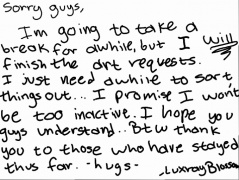 Sorry guys,
Im going to take a
break for awhile, but I will
finish the art requests.
I just need awhile to sort
things out... I promise I won't
be too inactive. I hope you
guys understand.. Btw thank
you to those who have stayed
thus far. -hugs-
-LuxrayBlossom